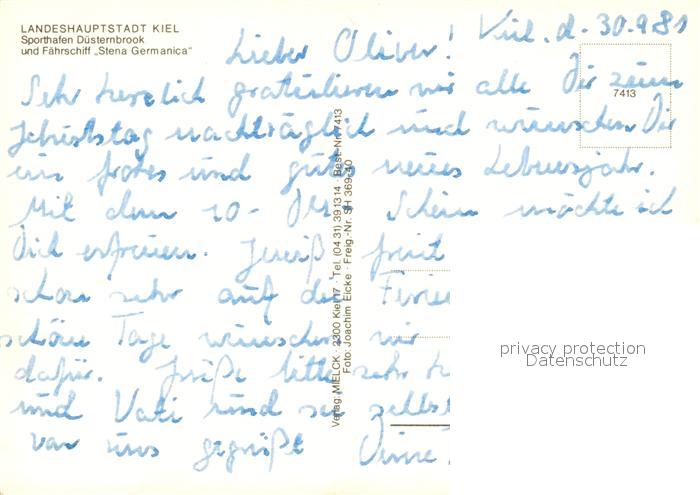 LANDESHAUPTSTADT KIEL
Sporthafen Düsternbrook
und Fährschiff „Stena Germanica"
Kiel. d. 30.9.81
Lieber Oliver!
Sehr herzlich gratulieren wir alle Dir zum
7413
Geburtstag nachträglich und wünschen Dir
ein frohes und gutes neues Lebensjahr.
Mit dem 10- DM Schein möchte ich
Dich erfreuen. freut
schon sehr auf die Ferien
schöne Tage wünschen wir
dafür. Grüße bitte sehr
und Vati und sei selbst
von uns gegrüßt Deine
Verlag: MIELCK · 2300 Kiel 17 · Tel. (04 31) 39 13 14 · Best.-Nr. 7413
Foto: Joachim Eicke · Freig.-Nr. SH 369-40
privacy protection
Datenschutz